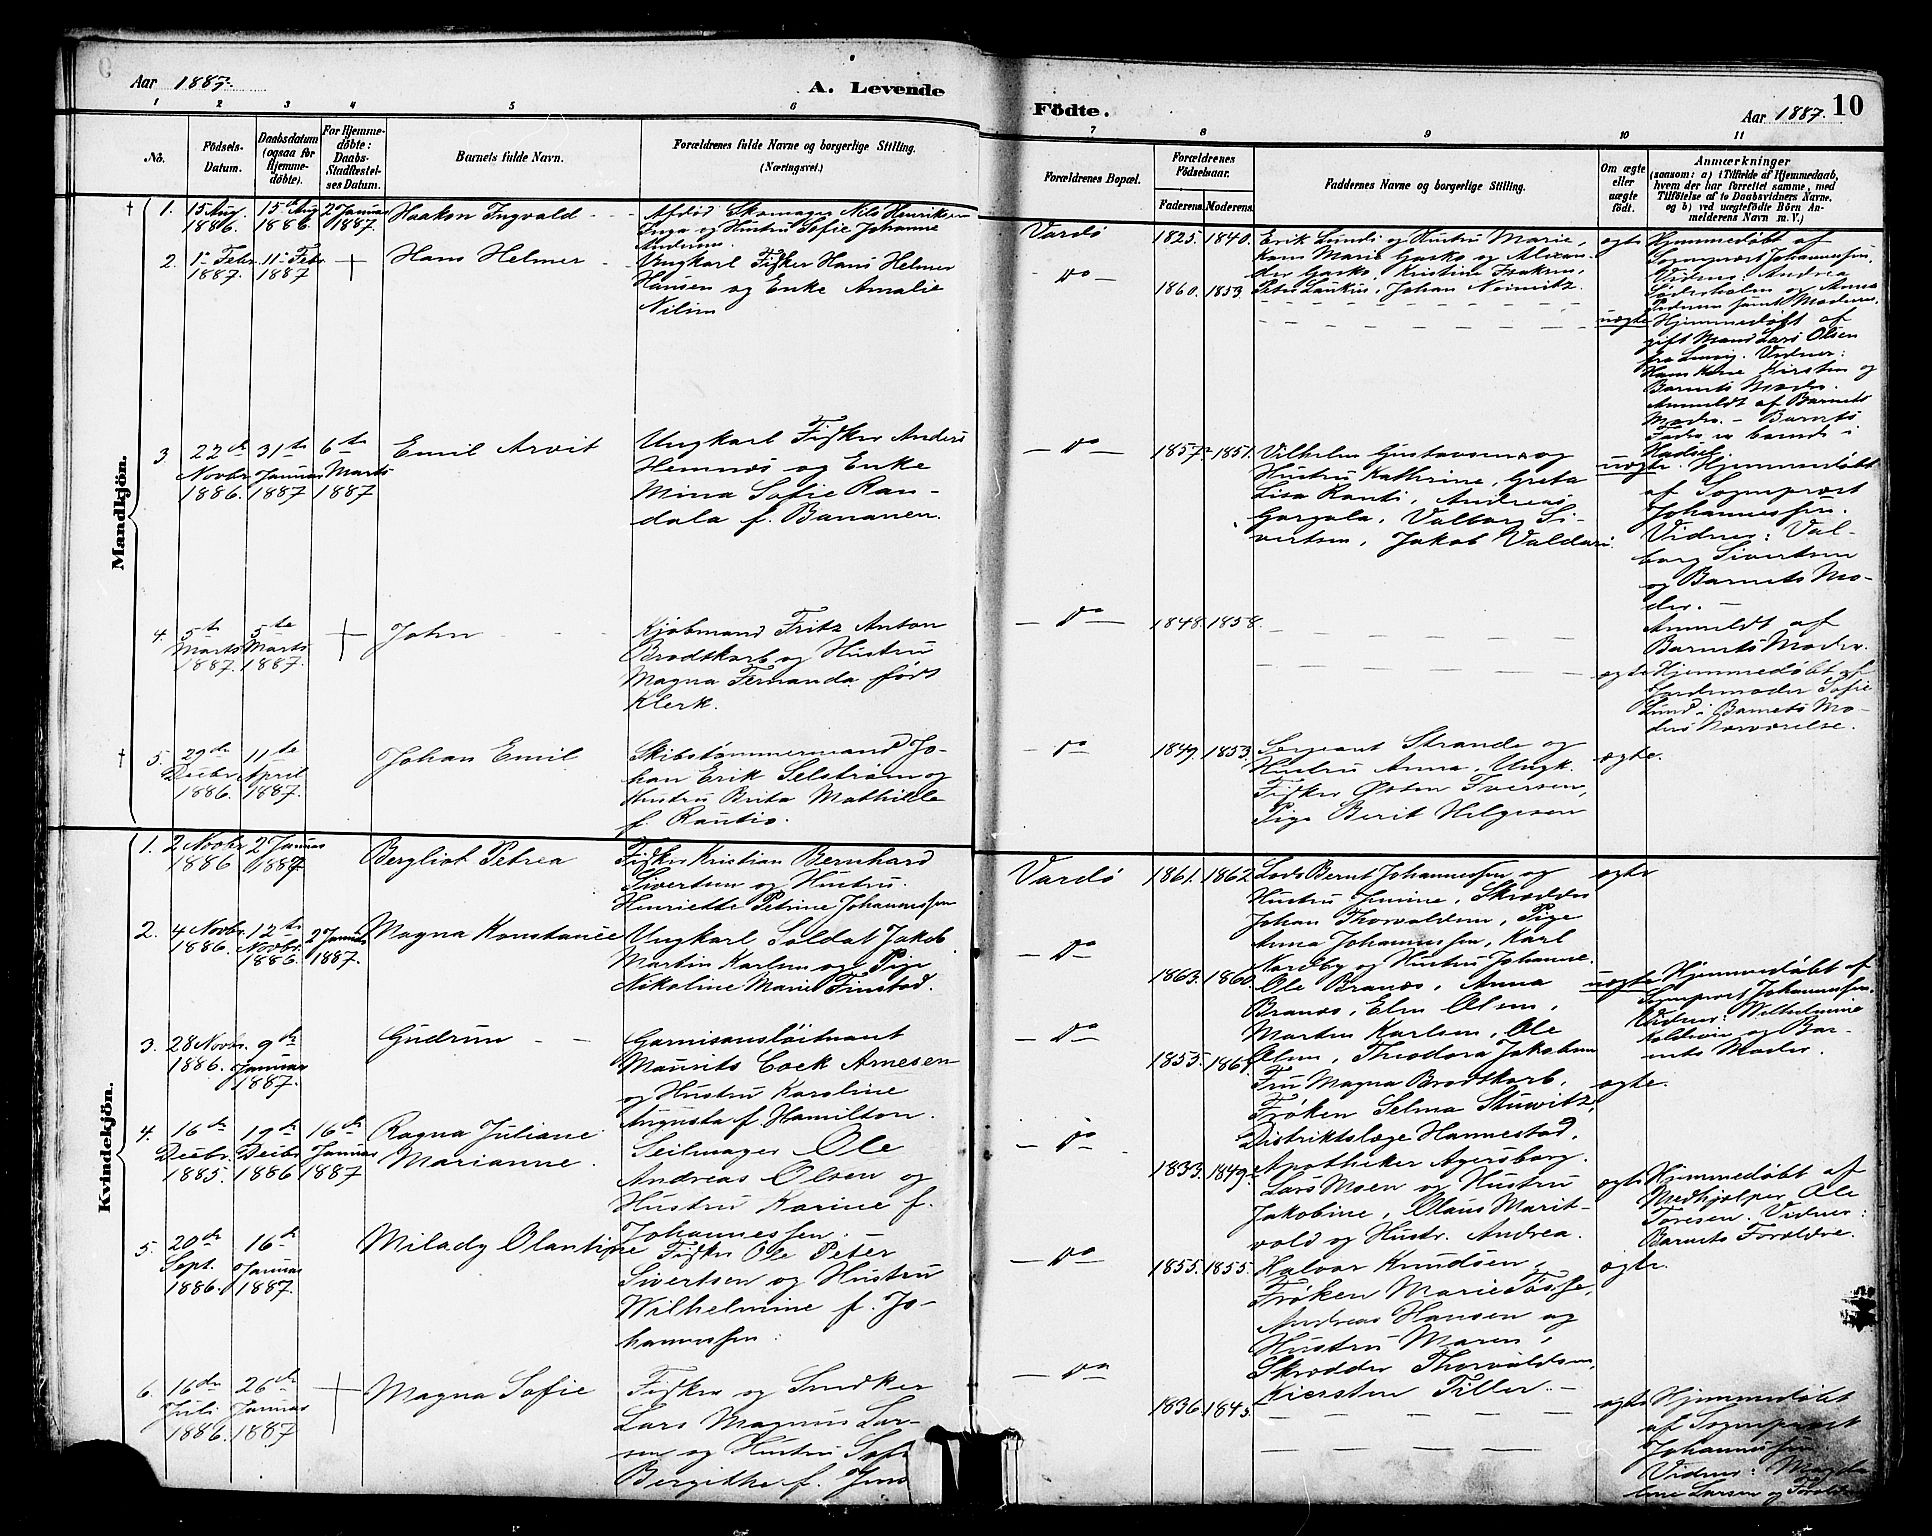 Aar 1887.
A. Levende
1 2 3 4 5 6
No.
Födsels-
Datum.
Daabsdatum
(ogsaa for
Hjemme-
døbte).
For Hjemme-
døbte:
Daabs-
Stadfæstel-
ses Datum.
Barnets fulde Navn.
Forældrenes fulde Navne og borgerlige Stilling.
(Næringsvei.)
Mandkjön.
1. 15 Aug 1886. 15de Aug 1886. 2 Januar 1887. Haakon Ingvald
Afdød Skomager Nils Henriksen
Inga og Hustru Sofie Johanne
Andersen
2. 1ste Febr 1887 11te Febr 1887 Hans Helmer
Ungkarl Fisker Hans Helmer
Hansen og Enke Amalie
Nilsen
3 22de Novbr 1886. 31te Januar 1887 6te Marts 1887 Emil Arvit
Ungkarl Fisker Anders
Hemnes og Enke
Mina Sofie Ran-
dala f. Bananen.
4. 5te Marts 1887. 5te Marts 1887. John
Kjøbmand Fritz Anton
Brodtkorb og Hustru
Magna Fernanda født
Klerk.
5. 29de Decbr. 1886. 11te April 1887. Johan Emil
Skibstømmermand Jo-
han Erik Selstrøm og
Hustru Brita Mathilde
f. Rautio.
Kvindekjön.
1. 2 Novbr 1886 2 Januar 1887 Bergliot Petrea
Fisker Kristian Bernhard
Sivertsen og Hustru
Henriette Petrine Johannessen
2. 4 Novbr. 1886. 12te Novbr. 1886. 2 Januar 1887. Magna Konstance
Ungkarl Soldat Jakob
Martin Karlsen og Pige
Nikoline Marie Finstad.
3. 28 Novbr. 1886. 9de Januar 1887. Gudrun
Garnisonsløitnant
Maurits Cock Arnesen
og Hustru Karoline
Augusta f. Hamilton.
4. 16de Decbr. 1885. 19de Decbr 1886 16de Januar 1887 Ragna Juliane
Marianne.
Seilmager Ole
Andreas Olsen og
Hustru Karine f.
Johannessen.
5. 20de Sept. 1886. 16de Januar 1887. Milady Olantine
Fisker Ole Peter
Sivertsen og Hustru
Wilhelmine f. Jo-
hannessen.
6. 16de Juli 1886. 26de Januar 1887 Magna Sofie
Fisker og Snedker
Lars Magnus Lar-
sen og Hustru Sofi
Bergitha f. Jens
Födte.
Aar 1887. 10
7 8 9 10 11
Forældrenes Bopæl.
Forældrenes
Födselsaar.
Faderens. Moderens.
Faddernes Navne og borgerlige Stilling.
Om ægte
eller
uægte
født.
Anmærkninger
(saasom: a) i Tilfælde af Hjemmedaab,
hvem der har forrettet samme, med
Tilföielse af to Daabsvidners Navne,
og b) ved uægtefödte Börn An-
melderens Navn m. V.)
Vardø 1825. 1840.
Erik Lundi og Hustru Marie,
Hans Marie Gasko og Alexan-
der Gasko, Kristine Isaksen,
Peter Laukus, Johan Neimitz.
ægte
Hjemmedøbt af
Sognepræst Johannessen.
Vidner: Andrea
Søderholm og Anna
Pedersen samt Moderen.
do 1860. 1853.
uægte
Hjemmedøbt af
gift Mand Lars Olsen
fra Lervig. Vidner:
Hans Kone Kirsten og
Barnets Moder.
Anmeldt af Barnets
Moder. – Barnets
Fader er boende i
Hadsel.
do 1857. 1851.
Vilhelm Gustavsen og
Hustru Kathrine, Greta
Lisa Ranti, Andreas
Gargala, Valborg Si-
vertsen, Jakob Valdari.
uægte.
Hjemmedøbt
af Sognepræst
Johannessen.
Vidner: Val-
borg Sivertsen
og Barnets Mo-
der. –
Anmeldt af
Barnets Moder.
do 1848. 1858.
ægte
Hjemmedøbt af
Jordemoder Sofie
Lund i Barnets Mo-
ders Nærværelse.
do 1849. 1853.
Sergeant Strande og
Hustru Anna, Ungk.
Fisker Østen Iversen,
Pige Berit Helgesen
ægte.
Vardø 1861. 1862
Lods Bernt Johannessen og
Hustru Jensine, Skrædder
Johan Thorvaldsen, Pige
Anna Johannessen, Karl
Nordby og Hustru Johanne.
ægte
do 1863. 1860.
Ole Branæs, Anna
Branæs, Elen Olsen,
Martin Karlsen, Ole
Olsen, Theodora Jakobsen
uægte
Hjemmedøbt af
Sognepræst Johannessen.
Vidner: Wilhelmine
Koldevin og Bar-
nets Moder.
do 1855. 1861.
Fru Magna Brodtkorb,
Frøken Selma Stuwitz,
Distriktslæge Hannestad,
Apotheker Agersborg.
ægte.
do 1833. 1849.
Lars Moen og Hustru
Jakobine, Olaus Marit-
vold og Hustr. Andrea.
ægte
Hjemmedøbt af
Medhjælper Ole
Toresen. Vidner:
Barnets Forældre.
do 1855. 1855.
Halvor Knudsen,
Frøken Marie Fosse,
Andreas Hansen og
Hustru Maren,
Skrædder Thorvaldsen,
Kiersten Tiller. –
ægte.
do 1836. 1845.
ægte
Hjemmedøbt
af Sognepræst
Johannessen.
Vidner: Magda-
lene Larsen og Forældre